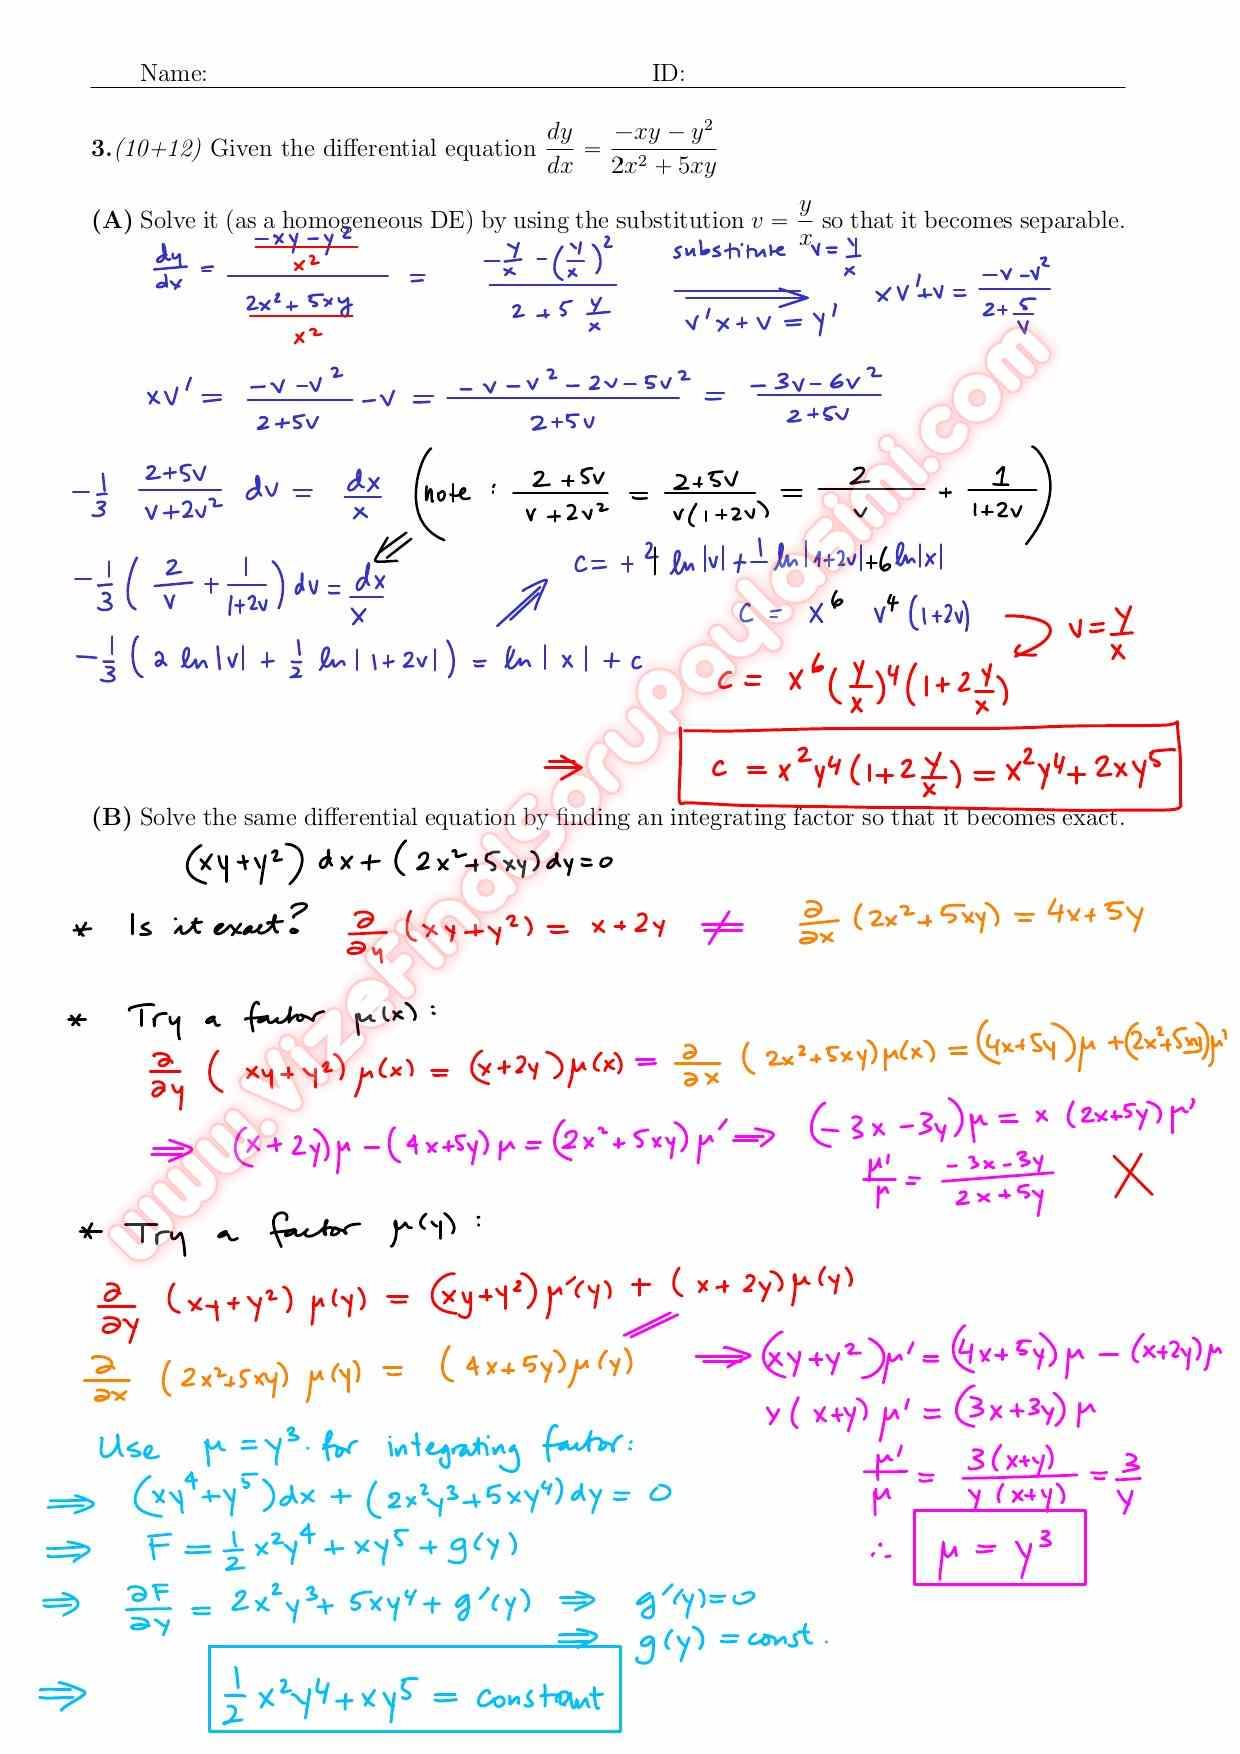 Name: ID:
3.(10+12) Given the differential equation dy/dx = (−xy − y²)/(2x² + 5xy)
(A) Solve it (as a homogeneous DE) by using the substitution v = y/x so that it becomes separable.
dy/dx = ((-xy-y²)/x²)/((2x²+5xy)/x²) = (-y/x -(y/x)²)/(2+5 y/x) substitute v=y/x ⟹ v'x+v=y' xv'+v = (-v-v²)/(2+5/v)
xv' = (-v-v²)/(2+5v) -v = (-v-v²-2v-5v²)/(2+5v) = (-3v-6v²)/(2+5v)
-1/3 (2+5v)/(v+2v²) dv = dx/x (note : (2+5v)/(v+2v²) = (2+5v)/(v(1+2v)) = 2/v + 1/(1+2v))
-1/3 (2/v + 1/(1+2v)) dv = dx/x
c = + 4 ln|v| + ln|1+2v| + 6 ln|x|
c = x⁶ v⁴ (1+2v)
v = y/x
-1/3 (2 ln|v| + 1/2 ln|1+2v|) = ln|x| + c
c = x⁶ (y/x)⁴ (1+2 y/x)
⇒ c = x²y⁴(1+2 y/x) = x²y⁴+2xy⁵
(B) Solve the same differential equation by finding an integrating factor so that it becomes exact.
(xy+y²) dx + (2x²+5xy) dy = 0
* Is it exact? ∂/∂y (xy+y²) = x+2y ≠ ∂/∂x (2x²+5xy) = 4x+5y
* Try a factor μ(x):
∂/∂y (xy+y²)μ(x) = (x+2y)μ(x) = ∂/∂x (2x²+5xy)μ(x) = (4x+5y)μ + (2x²+5xy)μ'
⇒ (x+2y)μ - (4x+5y)μ = (2x²+5xy)μ' ⇒ (-3x-3y)μ = x(2x+5y)μ'
μ'/μ = (-3x-3y)/(2x+5y) X
* Try a factor μ(y):
∂/∂y (xy+y²) μ(y) = (xy+y²)μ'(y) + (x+2y)μ(y)
∂/∂x (2x²+5xy) μ(y) = (4x+5y)μ(y)
⇒ (xy+y²)μ' = (4x+5y)μ - (x+2y)μ
y(x+y)μ' = (3x+3y)μ
μ'/μ = 3(x+y)/(y(x+y)) = 3/y
∴ μ = y³
Use μ = y³ for integrating factor:
⇒ (xy⁴+y⁵)dx + (2x²y³+5xy⁴)dy = 0
⇒ F = 1/2 x²y⁴ + xy⁵ + g(y)
⇒ ∂F/∂y = 2x²y³ + 5xy⁴ + g'(y) ⇒ g'(y)=0
⇒ g(y) = const.
⇒ 1/2 x²y⁴ + xy⁵ = constant
www.VizeFinalSoruPaylasimi.com